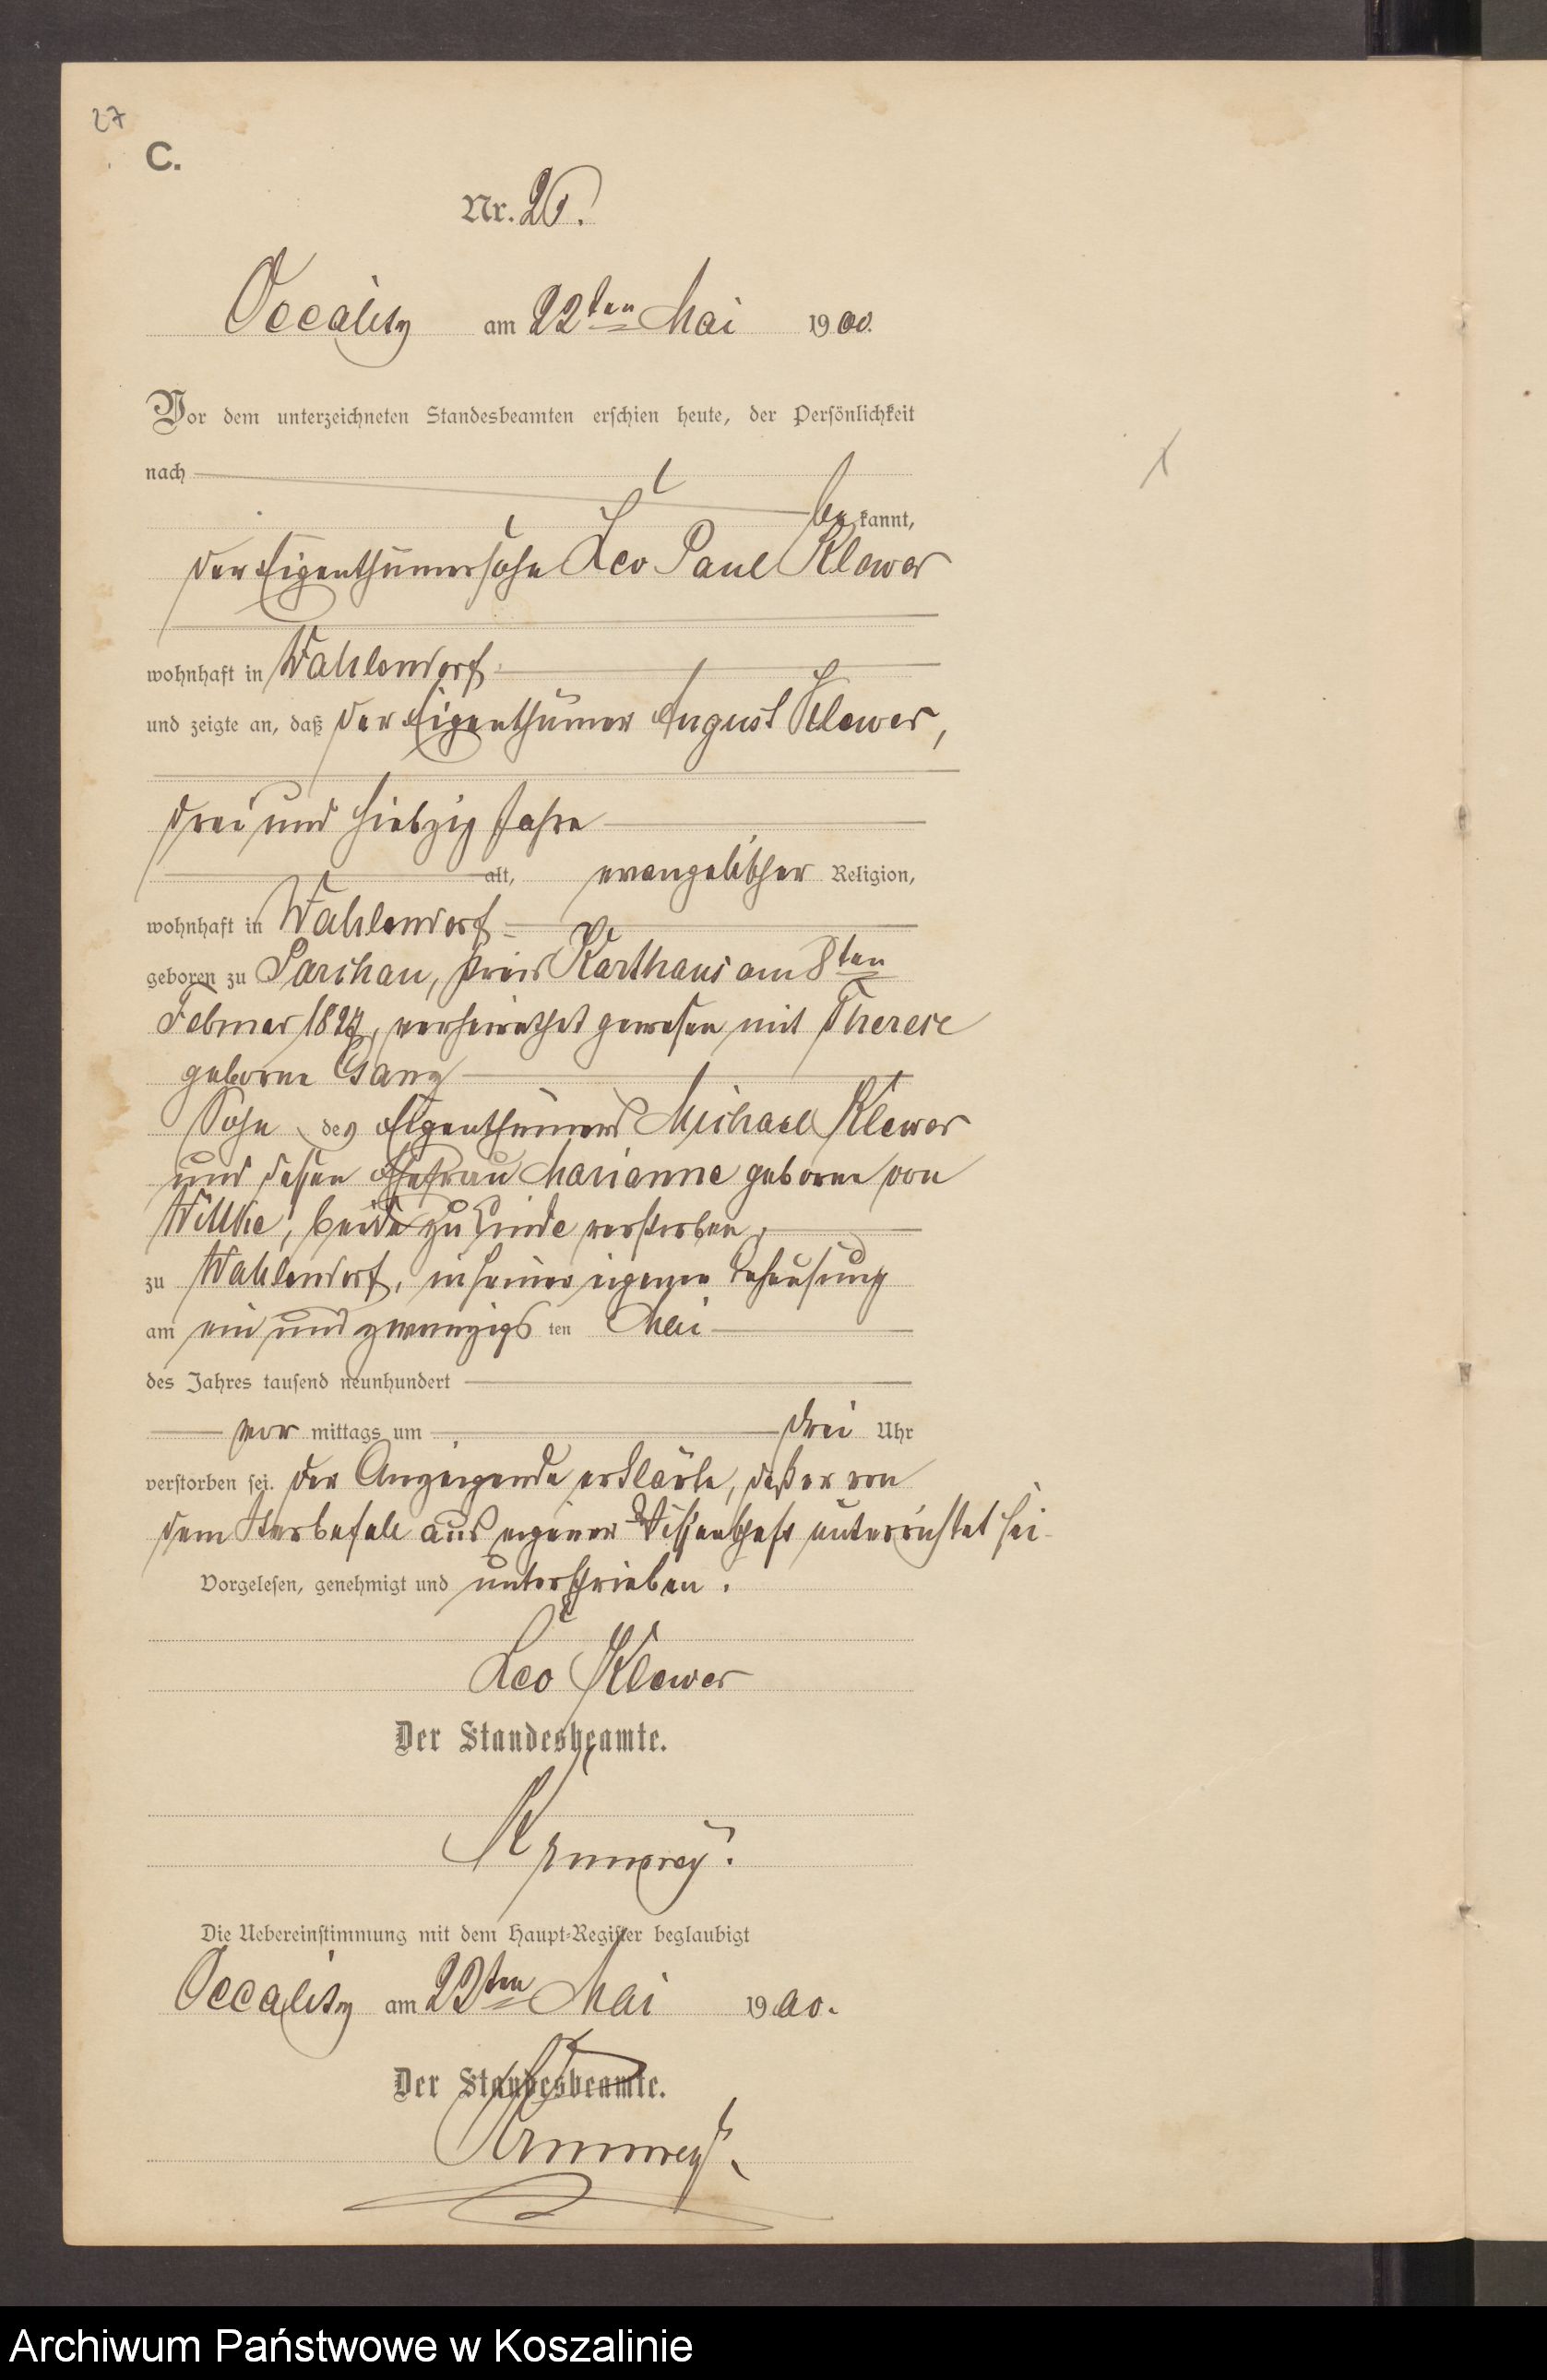 27
C.
Nr. 26.
Occalitz am 22ten Mai 1900.
Vor dem unterzeichneten Standesbeamten erschien heute, der Persönlichkeit
nach
bekannt,
der Eigenthümersohn Leo Paul Klewer
wohnhaft in Wahlendorf
und zeigte an, daß der Eigenthümer August Klewer,
drei und siebzig Jahre
alt, evangelischer Religion,
wohnhaft in Wahlendorf
geboren zu Parchau, Kreis Karthaus am 8ten
Februar 1827, verheirathet gewesen mit Therese
geborne Ganz
Sohn des Eigenthümers Michael Klewer
und dessen Ehefrau Marianne geborne von
Wittke, beide zu Linde verstorben,
zu Wahlendorf, in seiner eigenen Behausung
am ein und zwanzigsten Mai
des Jahres tausend neunhundert
vormittags um drei Uhr
verstorben sei. Der Anzeigende erklärte, daß er von
dem Sterbefall aus eigener Wissenschaft unterrichtet sei
Vorgelesen, genehmigt und unterschrieben.
Leo Klewer
Der Standesbeamte.
Die Uebereinstimmung mit dem Haupt-Register beglaubigt
Occalitz am 22ten Mai 1900.
Der Standesbeamte.
Archiwum Państwowe w Koszalinie